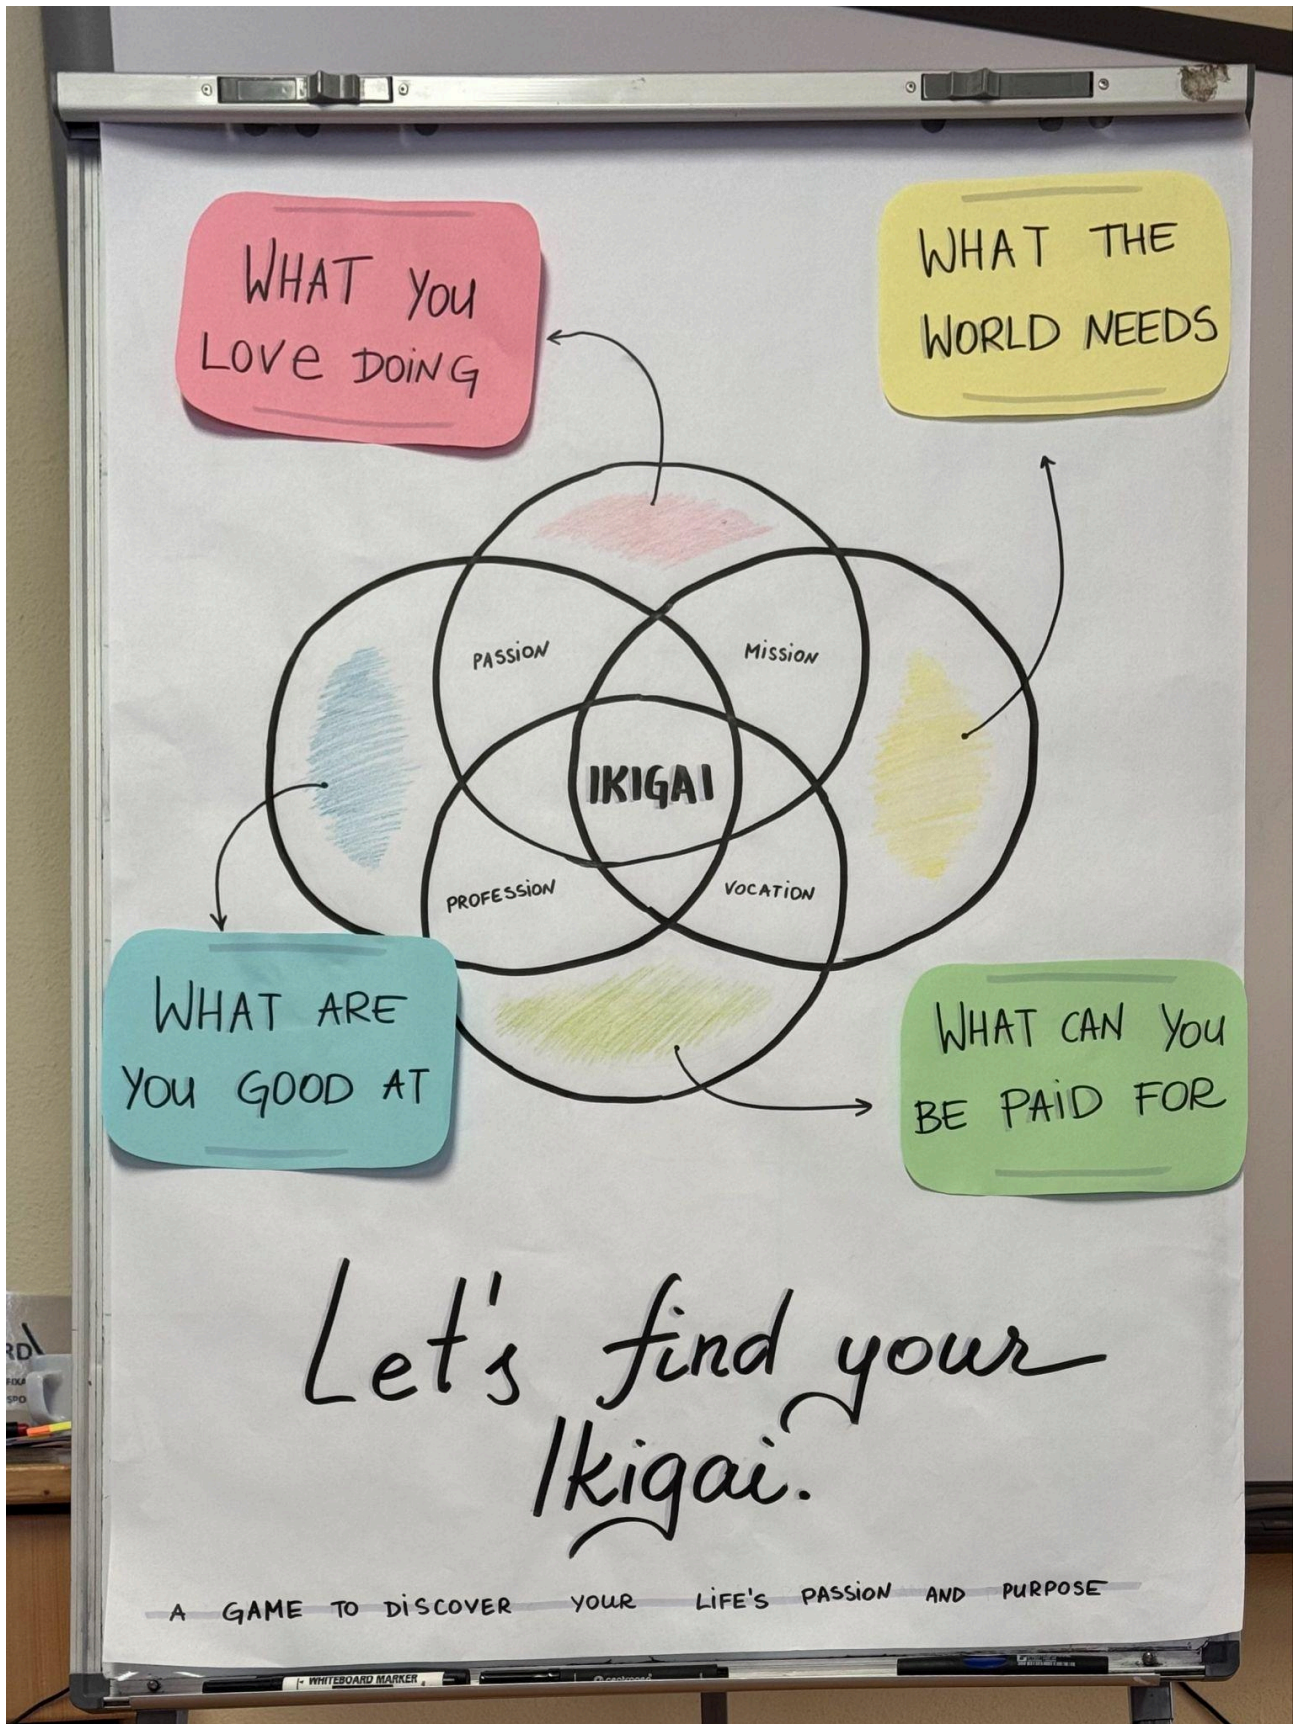 WHAT YOU
LOVE DOING
WHAT THE
WORLD NEEDS
PASSION
MISSION
IKIGAI
PROFESSION
VOCATION
WHAT ARE
YOU GOOD AT
WHAT CAN YOU
BE PAID FOR
Let's find your
Ikigai.
A GAME TO DISCOVER YOUR LIFE'S PASSION AND PURPOSE
WHITEBOARD MARKER